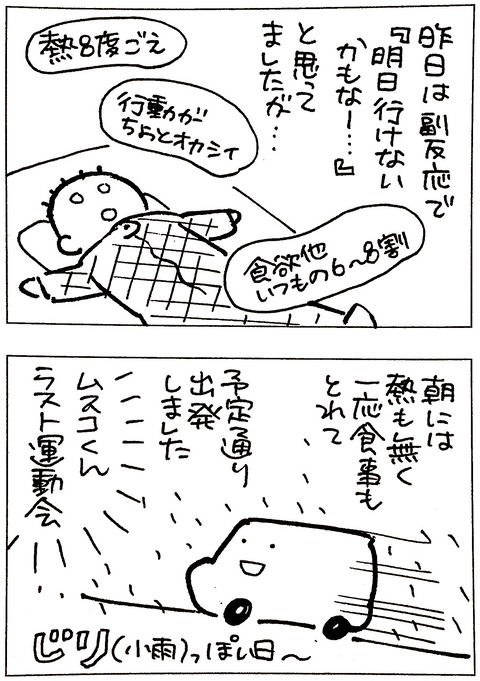 昨日は副反応で
『明日行けない
かもなー…』
と思って
ましたが…
熱8度ごえ
行動が
ちょっとオカシイ
食欲他
いつもの6〜8割
朝には
熱も無く
一応食事も
とれて
予定通り
出発
しました
ムスコくん
ラスト運動会
ビリ(小雨)っぽい日〜